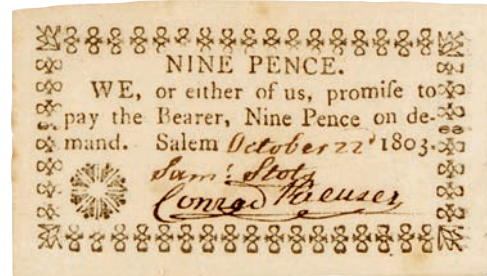 NINE PENCE.
WE, or either of us, promiſe to
pay the Bearer, Nine Pence on de-
mand. Salem October 22d 1803.
Saml. Stotz
Conrad Kreuser